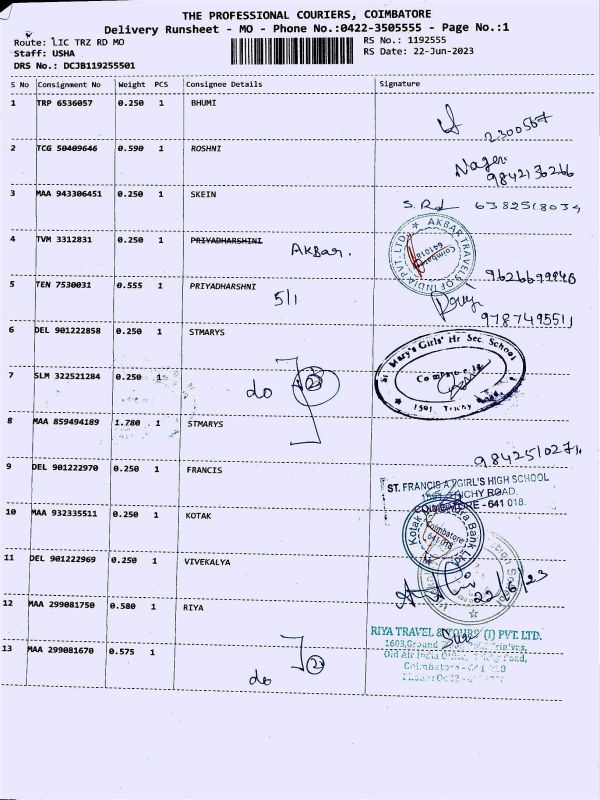 THE PROFESSIONAL COURIERS, COIMBATORE
Delivery Runsheet - MO - Phone No.:0422-3505555 - Page No.:1
Route: LIC TRZ RD MO
RS No.: 1192555
Staff: USHA
RS Date: 22-Jun-2023
DRS No.: DCJB119255501
S No Consignment No Weight PCS Consignee Details Signature
1 TRP 6536057 0.250 1 BHUMI
2300567
2 TCG 50409646 0.590 1 ROSHNI
9842136266
3 MAA 943306451 0.250 1 SKEIN
6382518034
4 TVM 3312831 0.250 1 PRIYADHARSHINI
AKBAR.
AKBAR TRAVELS OF INDIA PVT. LTD.
Coimbatore
641018
5 TEN 7530031 0.555 1 PRIYADHARSHNI
5/1
9787495511
6 DEL 901222858 0.250 1 STMARYS
St. Mary's Girls' Hr Sec. School
Coimbatore
1501, Trichy
7 SLM 322521284 0.250 1
do 2
8 MAA 859494189 1.780 1 STMARYS
9842510271
9 DEL 901222970 0.250 1 FRANCIS
ST. FRANCIS A GIRL'S HIGH SCHOOL
TRICHY ROAD,
COIMBATORE - 641 018.
10 MAA 932335511 0.250 1 KOTAK
Kotak Bank Ltd
Coimbatore
641018
11 DEL 901222969 0.250 1 VIVEKALYA
22/6/23
12 MAA 299081750 0.580 1 RIYA
RIYA TRAVEL & TOURS (I) PVT. LTD.
1603,Ground
Old Air India Office, Road,
Coimbatore
13 MAA 299081670 0.575 1
do 2